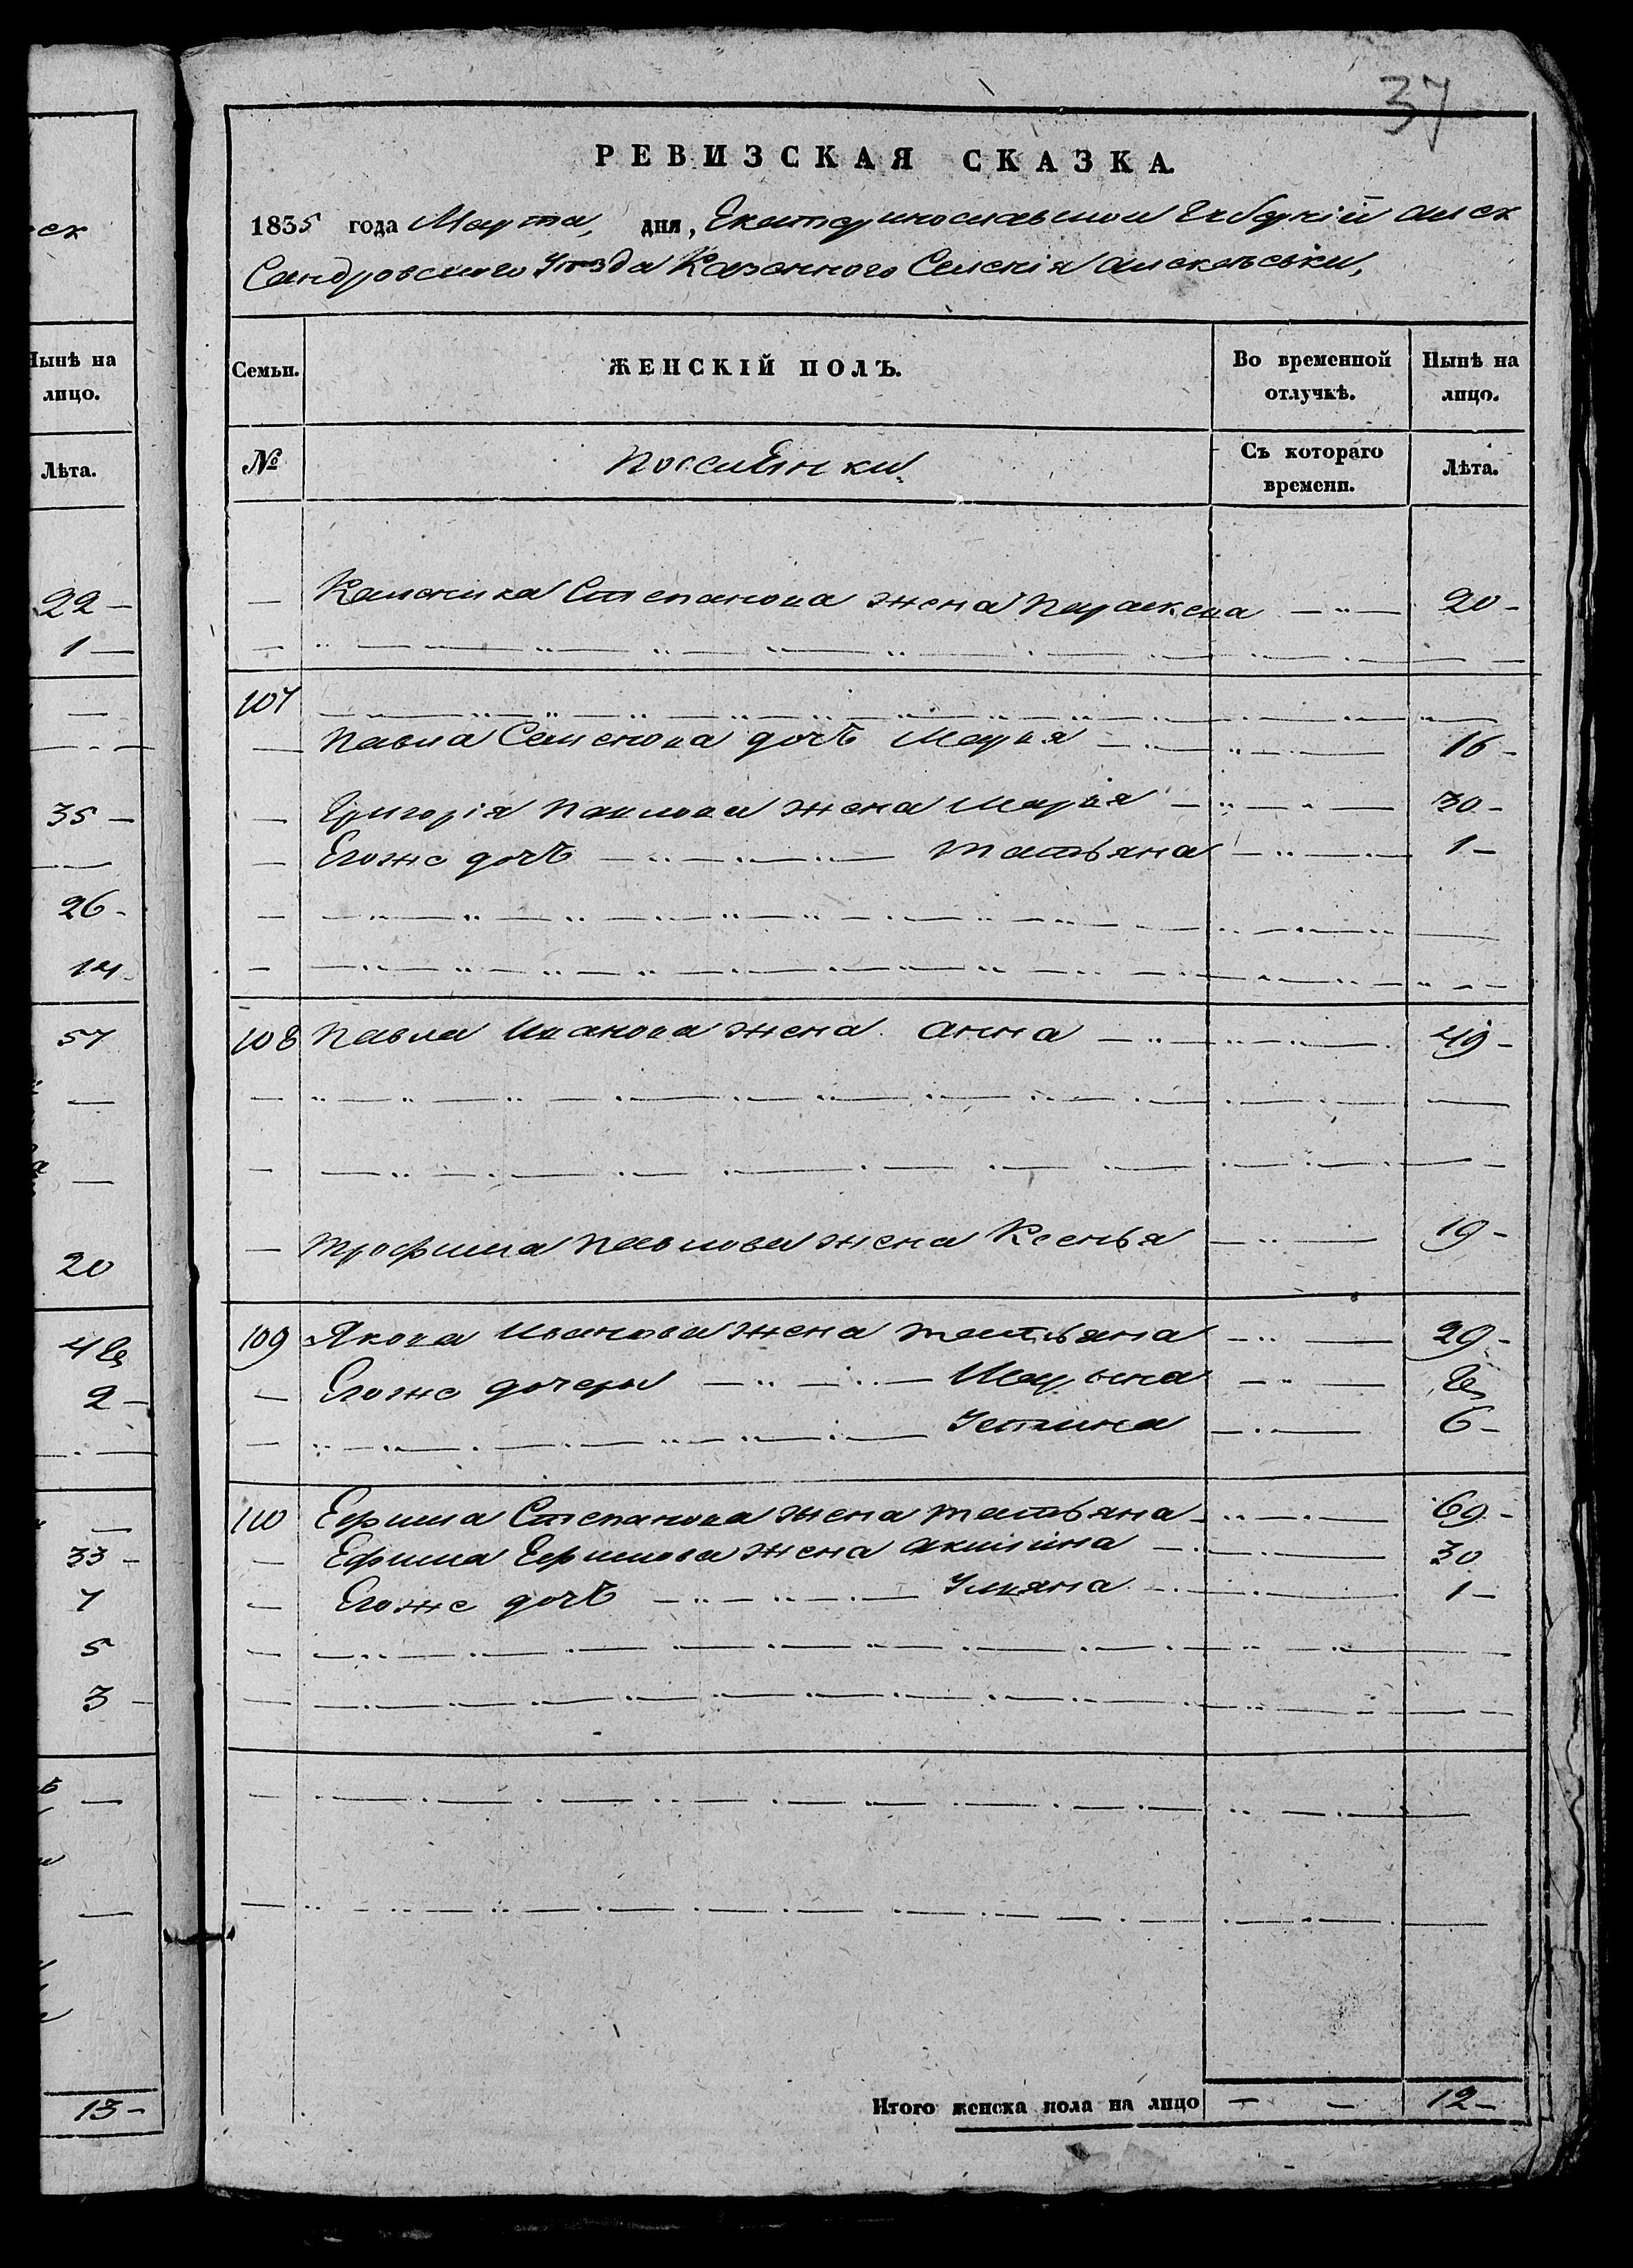 37
РЕВИЗСКАЯ СКАЗКА.
1835 года Марта, дня, Екатеринославской Губернїи Алек
Сандровского Уезда Казенного Селенїя Алексеевки,
Нынѣ на
лицо.
Лѣта.
22 —
1 —
—
35 —
26 -
14 -
57
—
—
20
48
2 —
—
33 -
7
5
3 -
13 -
Семьи. ЖЕНСКІЙ ПОЛЪ. Во временной отлучкѣ. Нынѣ на лицо.
№ Поселянки Съ котораго времени. Лѣта.
— Калиника Степанова жена Параскева — 20 -
107
— Павла Семенова дочь Марья — 16 -
— Григорїя Павлова жена Марья — 30 -
— Егоже дочь — Татьяна — 1 —
108 Павла Иванова жена Анна — 49 -
— Трофима Павлова жена Ксенья — 19 -
109 Якова Иванова жена Татьяна — 29 -
— Егоже дочеры — Марьна — 8
— Устина — 6 -
110 Ефима Степанова жена Татьяна — 69 -
— Ефима Ефимова жена Акилина — 30
— Егоже дочь — Ульяна — 1 —
Итого женска пола на лицо — — 12 —